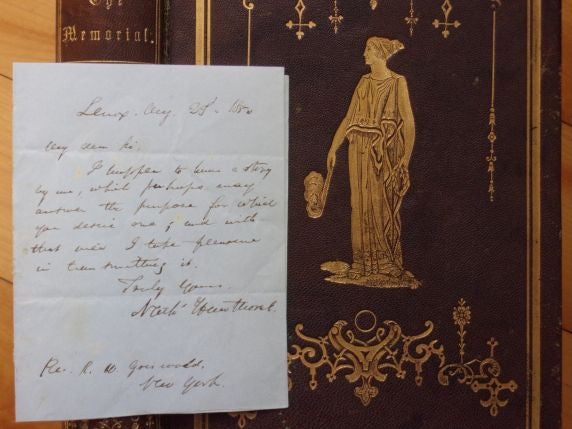 The
Memorial.
Lenox. Aug. 28. 1850
My dear Sir,
I happen to have a story
by me, which perhaps may
answer the purpose for which
you desire one; and with
that view I take pleasure
in transmitting it.
Truly Yours
Nath' Hawthorne.
Rev. R. W. Griswold,
New York.